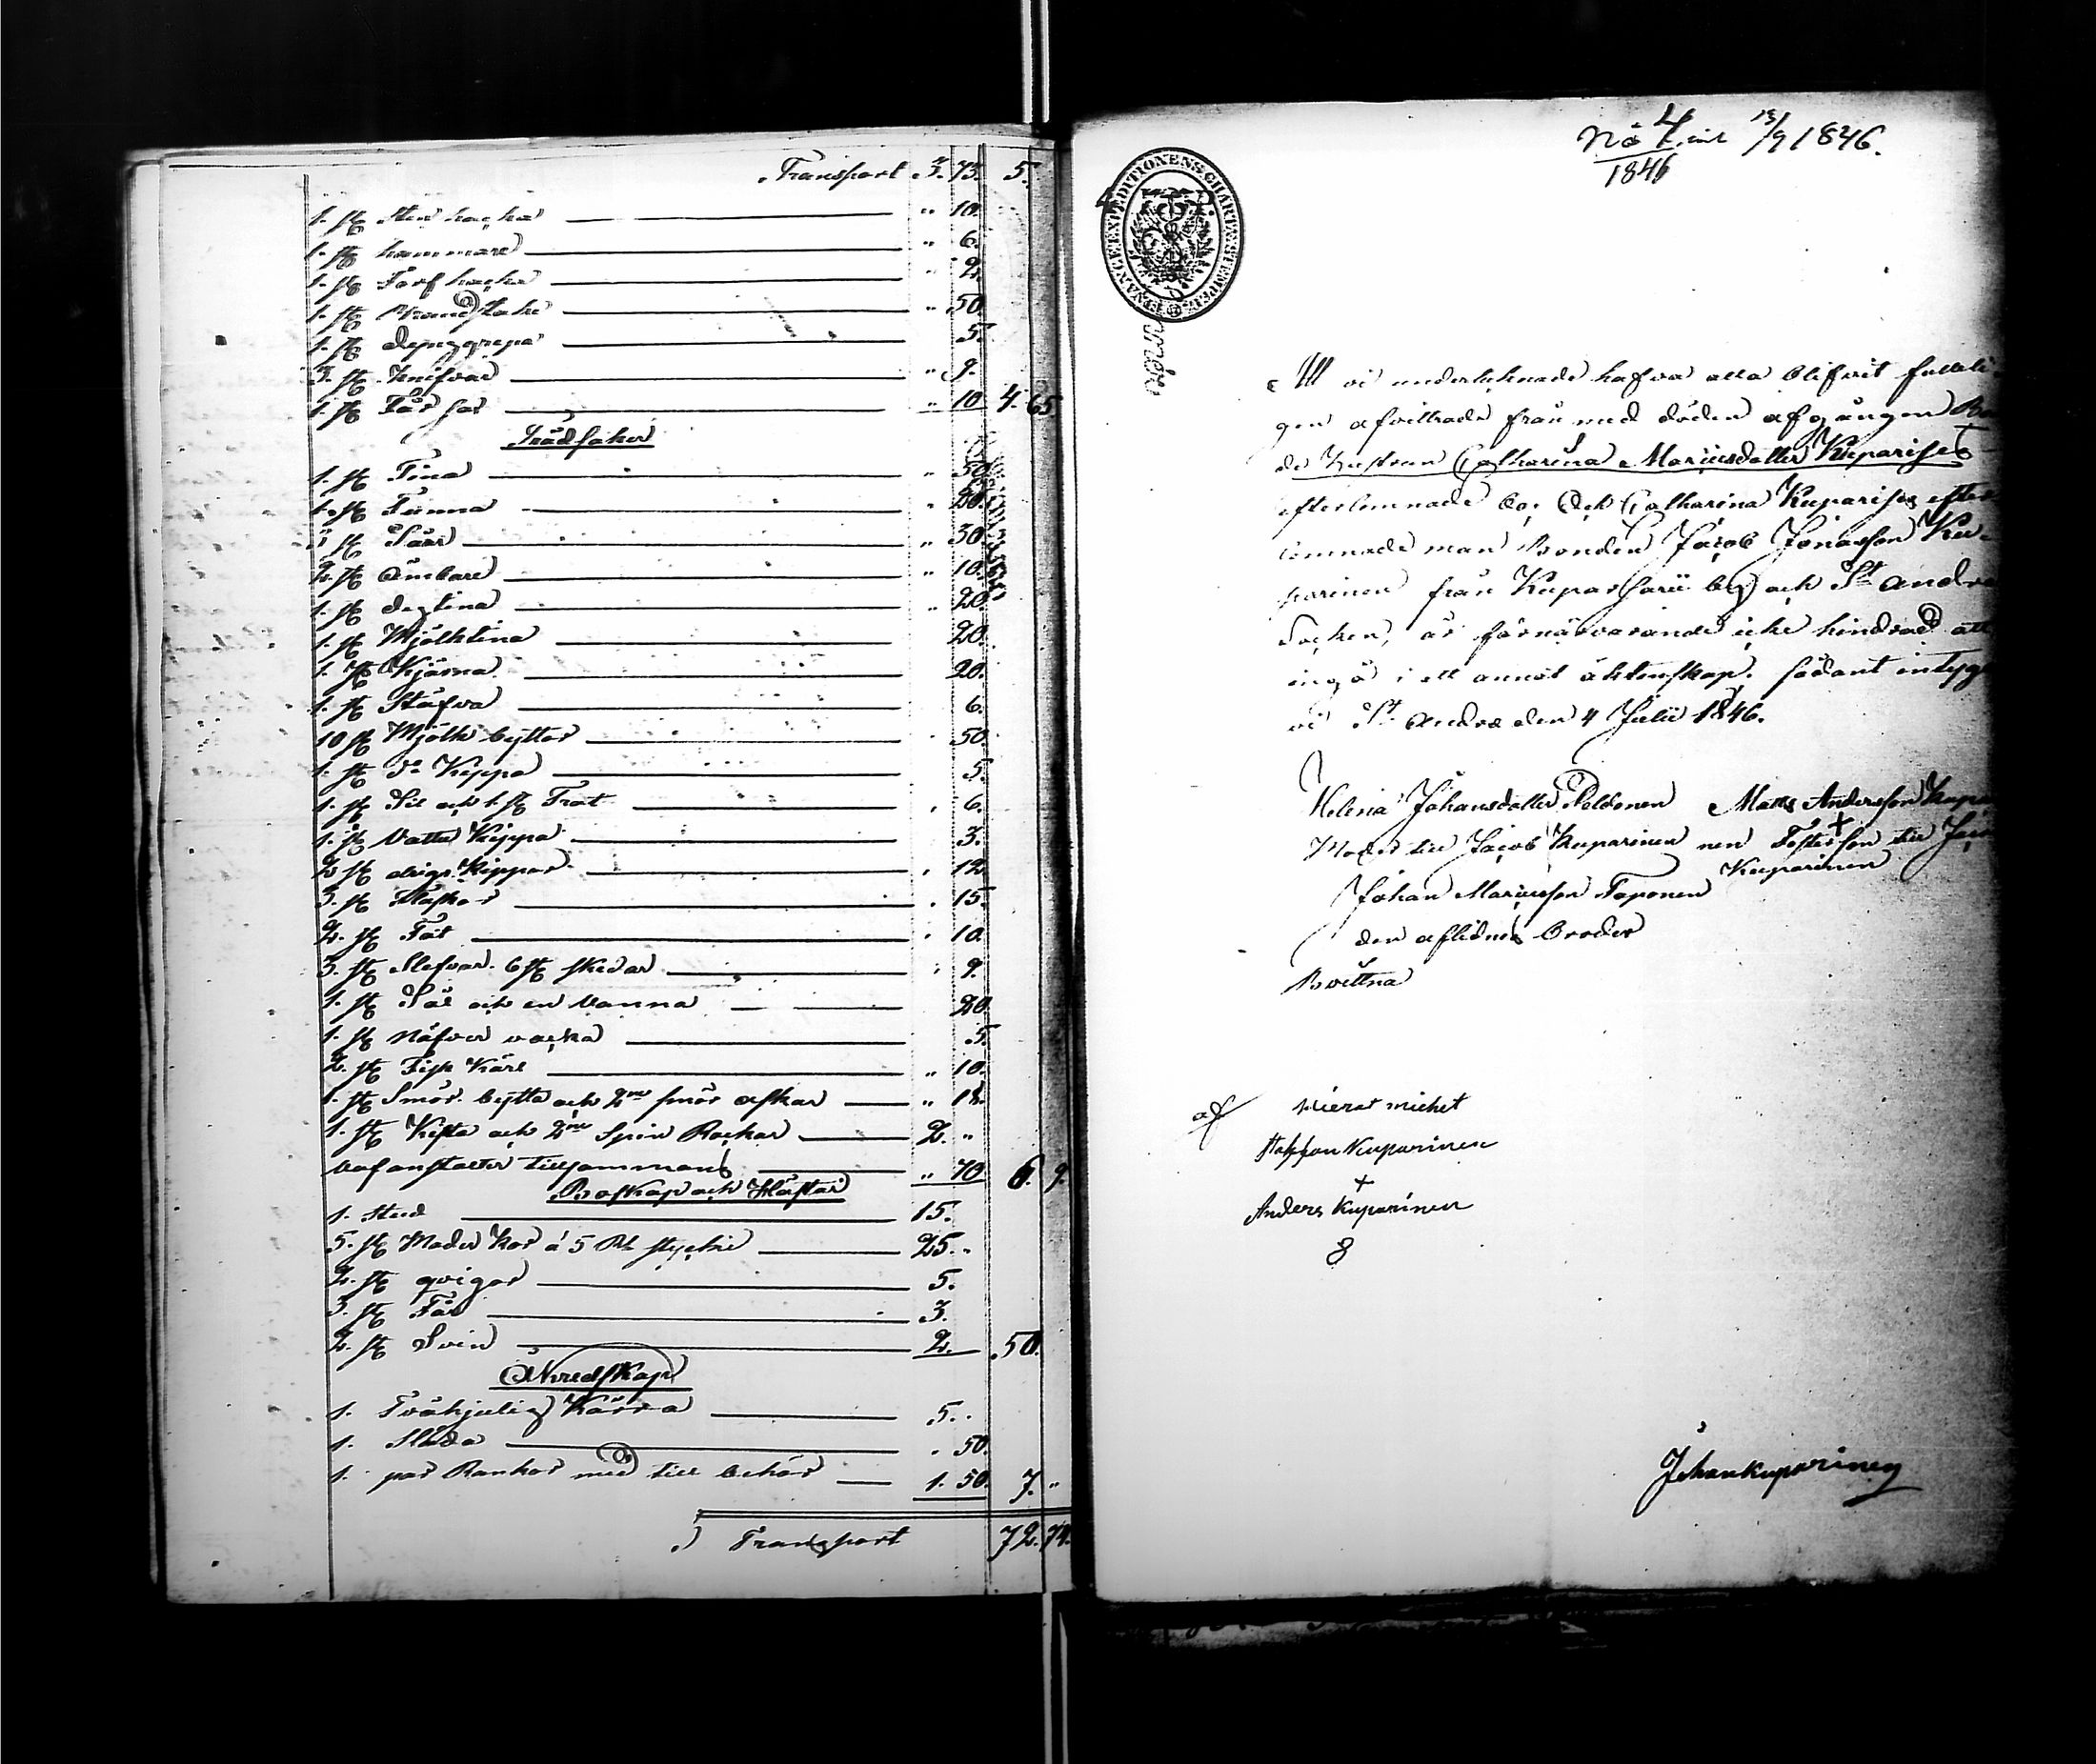 Transport 3. 73. 5.
1. st Stenhacka " 10.
1. st hammare " 6.
1. st Torfhacka " 2.
1. st Brandstake " 50.
1. st dynggrepa 5.
3. st Knifvar " 9.
1. st Fårsax " 10 4. 65
Trädsaker
1. st Tina " 50
1. st Tunna " 20.
1 st Såar " 30.
2. st Ämbare " 10.
1. st degtina " 20.
1. st Mjölktina 20.
1. st Kjärna 20.
1. st Stäfva 6.
10 st Mjölk byttor 50.
1. st do Kippa 5.
1. st Sil och 1. st Trat 6.
1. st Vattu Kippa 3.
2 st Kippor 12
3. st Flaskor 15.
2. st Fat 10.
3. st Slefvar. 6 st skedar 9.
1. st Såll och en Vanna 20.
1. st Näfver vacka 5.
2. st Fisk Kärl " 10.
1. st Smör. bytta och 2ne smör askar " 18.
1. st Kista och 2ne Spin Rockar 2. "
Vafanstalter tillsammans " 70 6. 9.
Boskap och Hästar
1. Stud 15.
5. st Moder Kor á 5 Rb stycke 25. "
2. st qvigor 5.
3. st Får 3.
2. st Svin 2. 50.
Åkredskap
1. Tvåhjulig Kärra 5. "
1. Släda . 50.
1. par Rankor med till behör 1. 50. 7. "
Transport 72. 74.
No 4 13/9 1846.
1846
FINANCE EXPEDITIONENS CHARTÆ STEMPEL
At vi undertecknade hafva alla blifvit fulleli
gen afvittrade från med döden afgångne Bon
de hustrun Catharina Mariusdotter Kuparises
efterlemnade bo; Och Catharina Kuparises efter
lemnade man Bonden Jacob Jönasson Ku-
parinen från Kuparsaari by och St Andræ
Socken, är förnärvarande icke hindrad att
ingå i ett annat äktenskap. sådant intyga
vi St Andræ den 4 Julii 1846.
Helena Johansdotter Poldonen Matts Andersson Kupa
Moder till Jacob Kuparinen nen + Fosterson till Jacob
Kuparinen
Johan Mariusson Toponen
den aflidnes broder
Bevittna
af Kierat miehet
Staffan Kuparinen
+
Anders Kuparinen
8
Johan Kuparinen